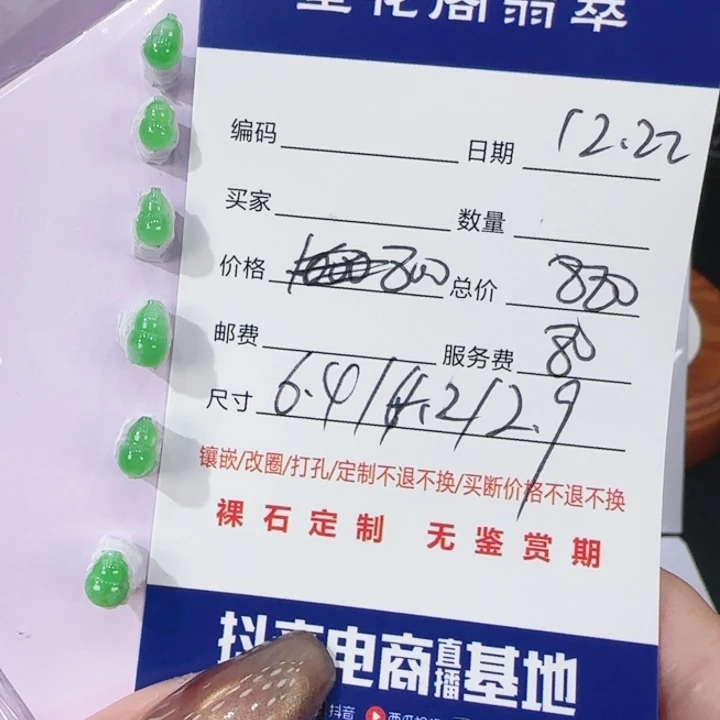 翡翠
编码 日期 12.22
买家 数量
价格 800 总价 880
邮费 服务费 80
尺寸 6.4/4.2/2.9
镶嵌/改圈/打孔/定制不退不换/买断价格不退不换
裸石定制 无鉴赏期
抖音电商直播基地
抖音